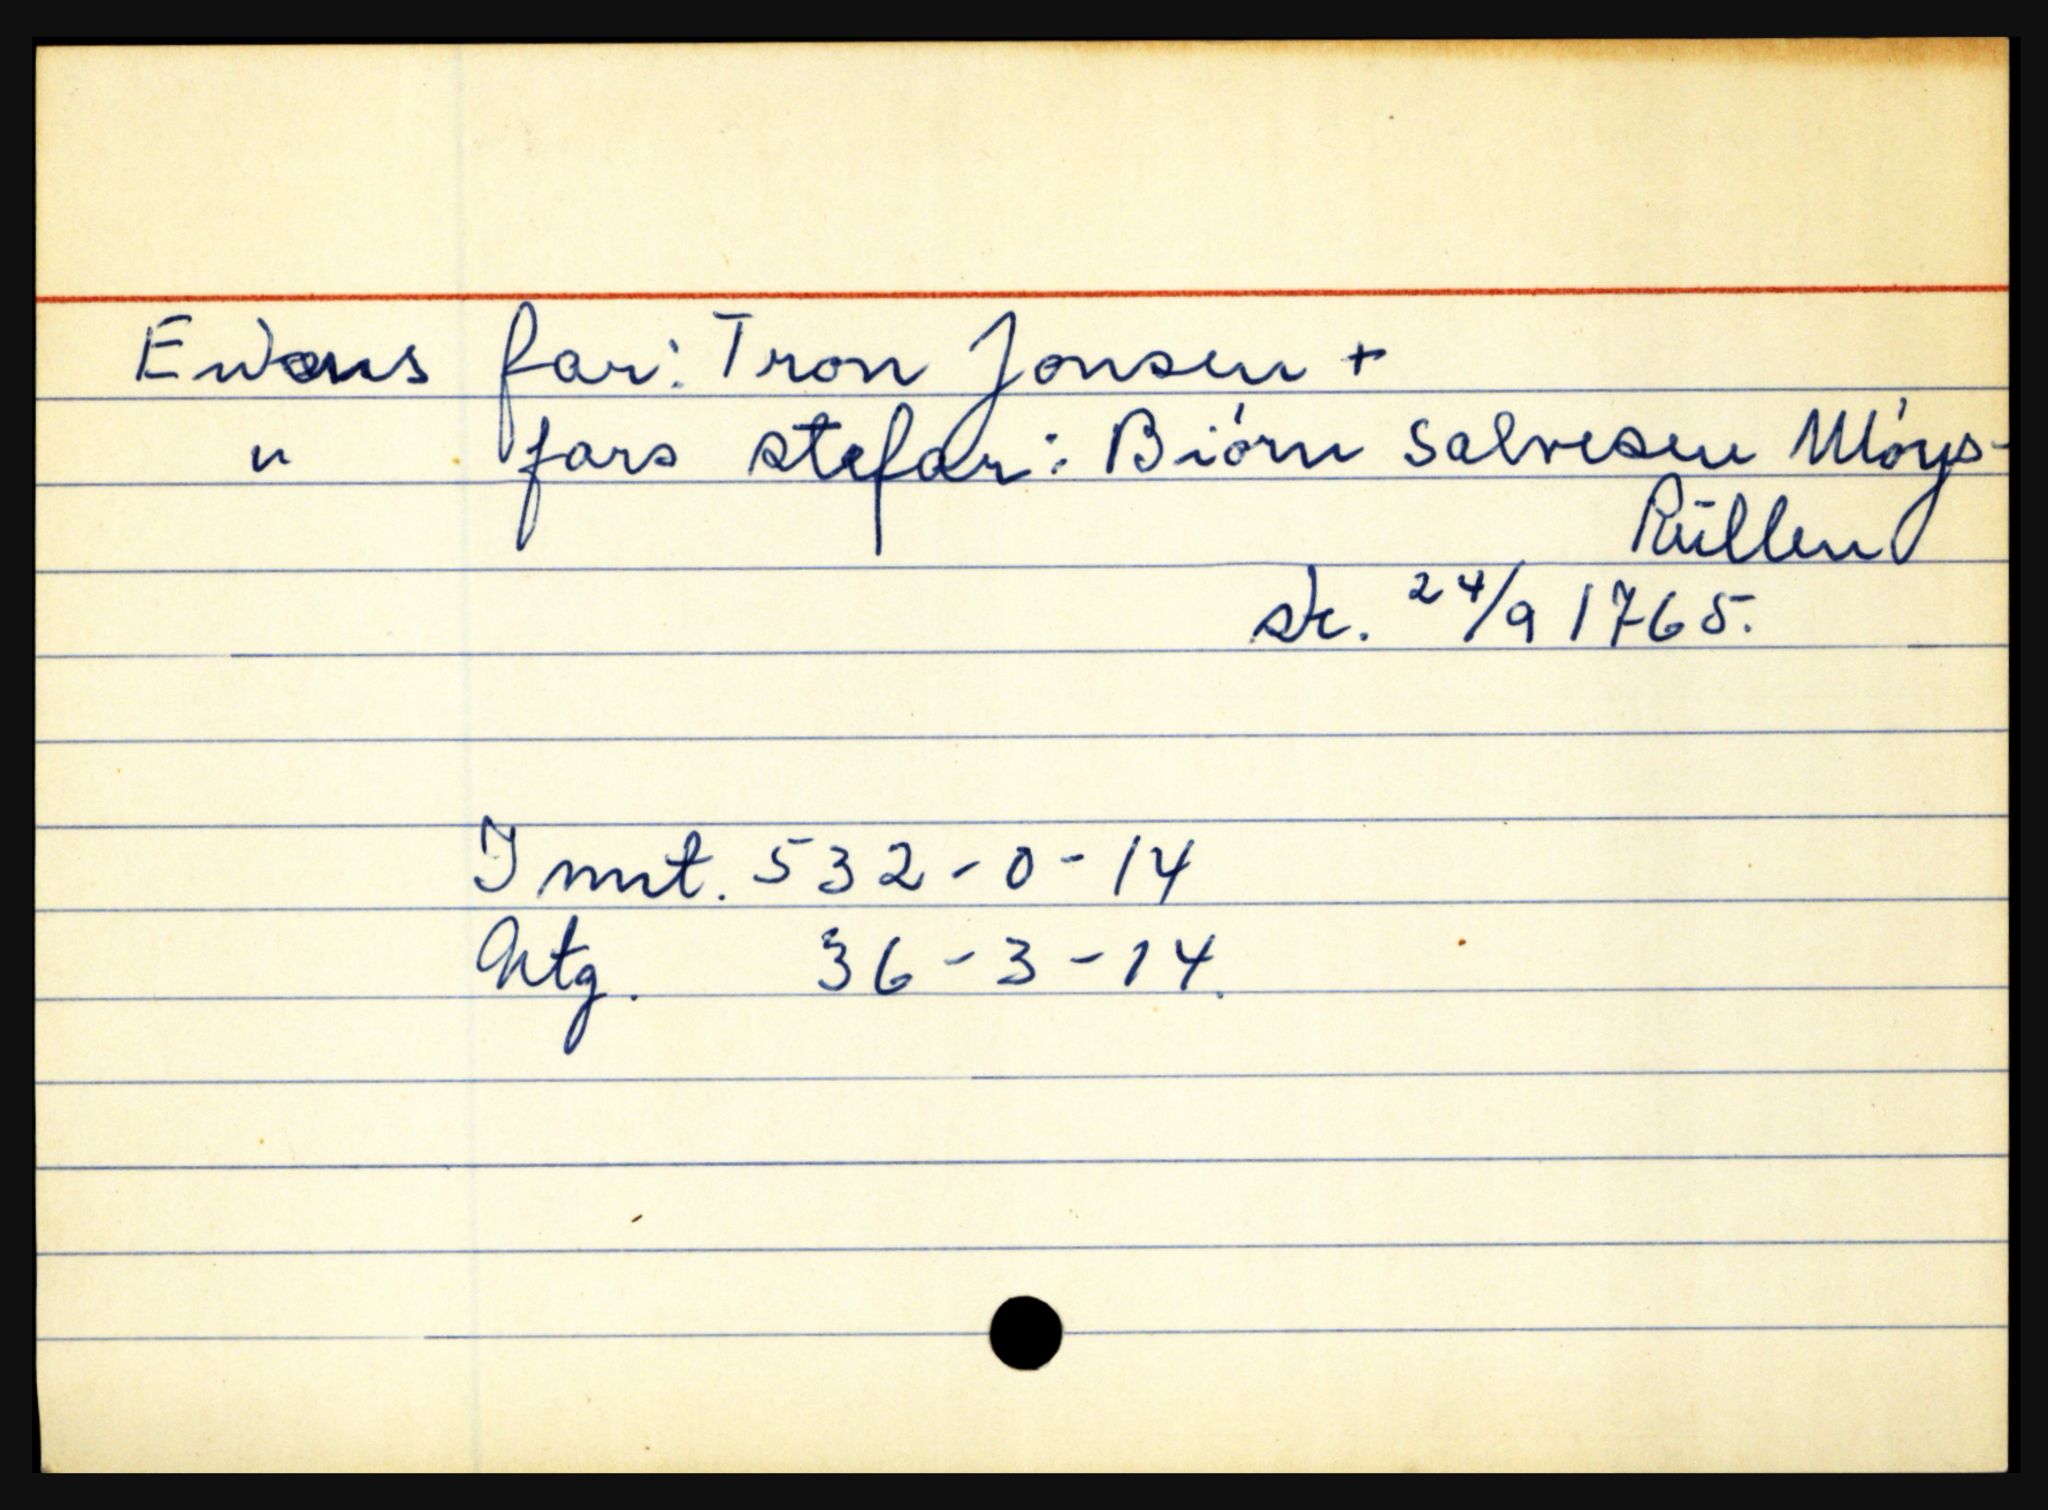 Enkens far: Tron Jonsen +
" fars stefar: Biórn Salvesen Móys-
Rüllen
sk. 24/9 1765.
Innt. 532-0-14
Utg. 36-3-14.